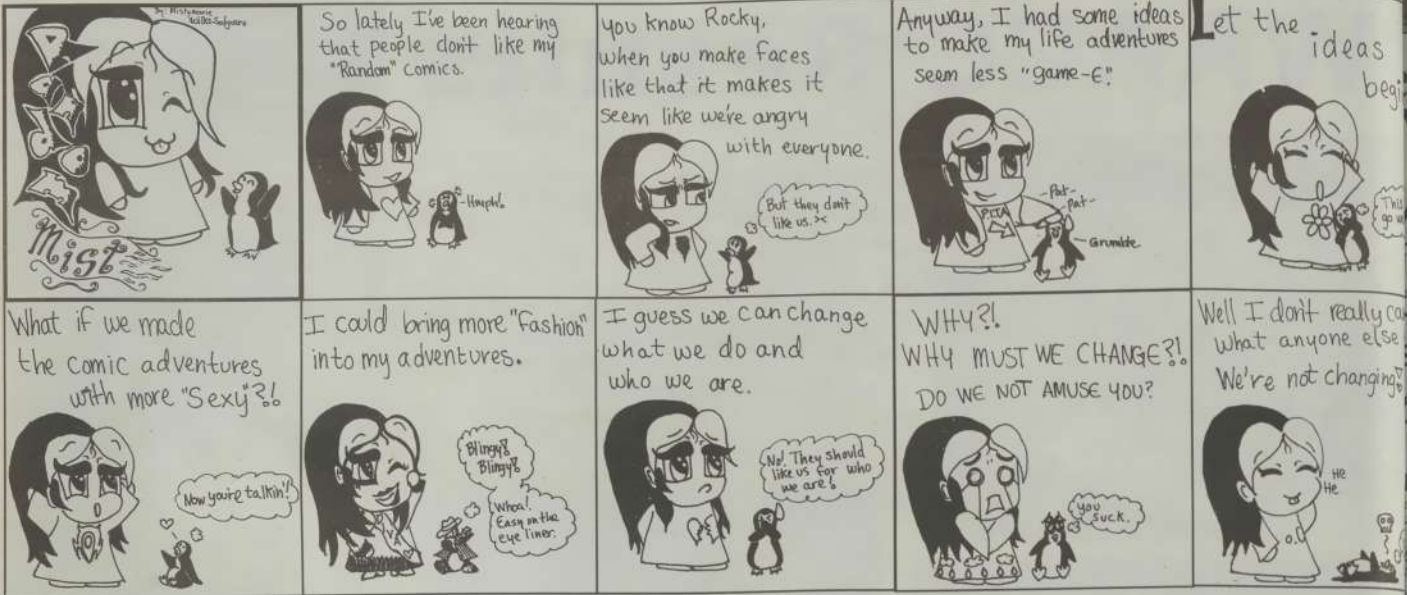 By: Mistymarie
Mist
So lately I've been hearing
that people don't like my
"Random" comics.
-Hmph!
you know Rocky,
when you make faces
like that it makes it
seem like we're angry
with everyone.
But they don't
like us. ><
Anyway, I had some ideas
to make my life adventures
seem less "game-E."
-Pat-
-Pat-
PETA
Grumble
Let the
ideas
begi
This
go w
What if we made
the comic adventures
with more "Sexy"?!
Now you're talkin'!
I could bring more "Fashion"
into my adventures.
Blingy!
Blingy!
Whoa!
Easy on the
eye liner.
I guess we can change
what we do and
who we are.
No! They should
like us for who
we are!
WHY?!
WHY MUST WE CHANGE?!
DO WE NOT AMUSE YOU?
You
suck.
Well I don't really ca
what anyone else
We're not changing!
He
He